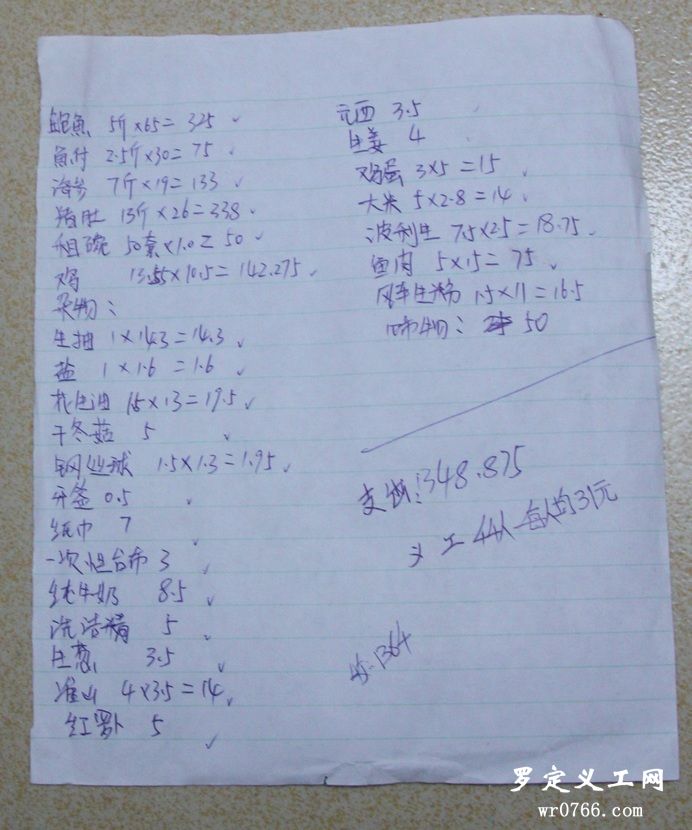 鲍鱼 5斤×65=325 ✓
鱼付 2.5斤×30=75 ✓
海参 7斤×19=133 ✓
猪肚 13斤×26=338 ✓
租碗 50套×1.0=50 ✓
鸡 13.55×10.5=142.275 ✓
杂物:
生抽 1×14.3=14.3 ✓
盐 1×1.6=1.6 ✓
花生油 1.5×13=19.5 ✓
干冬菇 5 ✓
钢丝球 1.5×1.3=1.95 ✓
牙签 0.5 ✓
纸巾 7 ✓
一次性台布 3 ✓
纯牛奶 8.5 ✓
洗洁精 5 ✓
生葱 3.5 ✓
淮山 4×3.5=14 ✓
红罗卜 5 ✓
元西 3.5
生姜 4
鸡蛋 3×5=15 ✓
大米 5×2.8=14 ✓
波利生 7.5×2.5=18.75 ✓
鱼肉 5×15=75 ✓
风车生粉 1.5×11=16.5
50
支出:1348.875
义工44人 每人均31元
1364
罗定义工网
wr0766.com